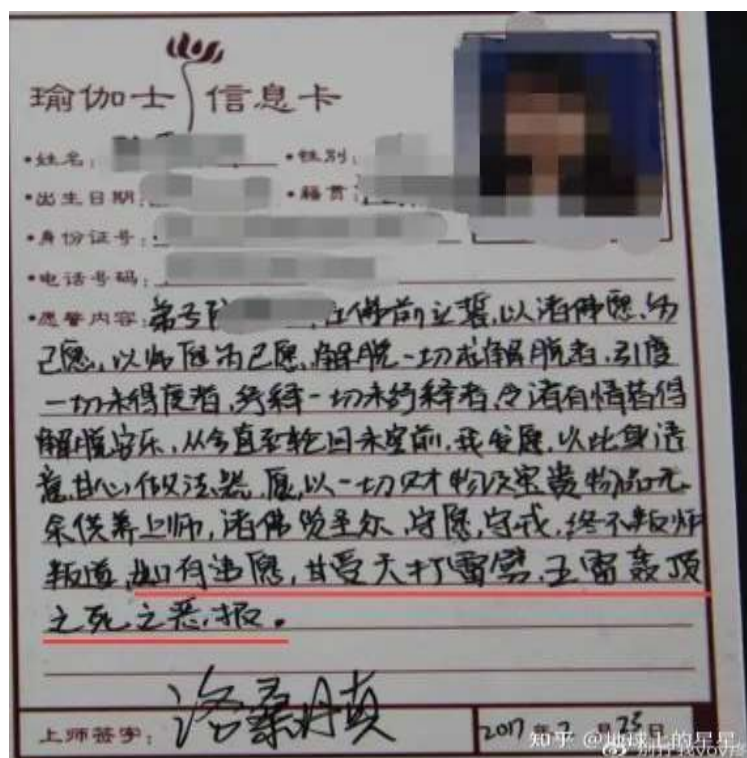 瑜伽士 信息卡
·姓名: ·性别:
·出生日期: ·籍贯:
·身份证号:
·电话号码:
·愿誓内容: 弟子 在佛前立誓,以诸佛愿为
己愿,以师愿为己愿,解脱一切求解脱者,引度
一切未得度者,纾释一切未纾释者,令诸有情皆得
解脱安乐,从今直至轮回未空前,我发愿,以此身语
意甘心做法器,愿以一切财物及宝贵物品无
余供养上师,诸佛贤圣众,守愿,守戒,终不叛师
叛道,如有违愿,甘受天打雷劈,五雷轰顶
之死之恶报。
上师签字: 洛桑丹真
2017年 月25日
知乎 @地球上的星星